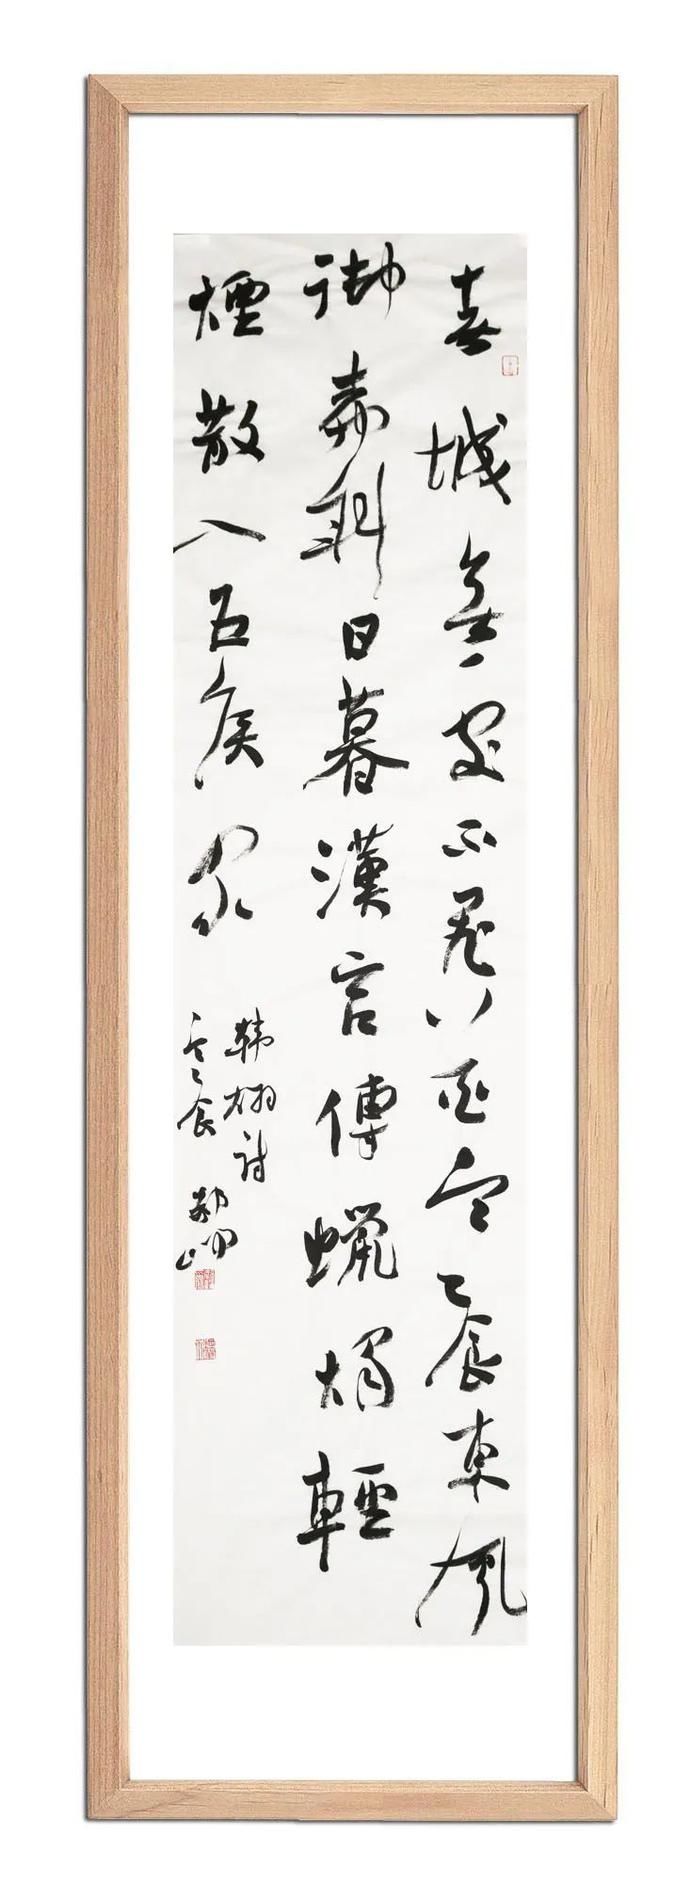 春城無處不飛花寒食東風
御柳斜日暮漢宮傳蠟燭輕
煙散入五侯家
韓翃詩
寒食